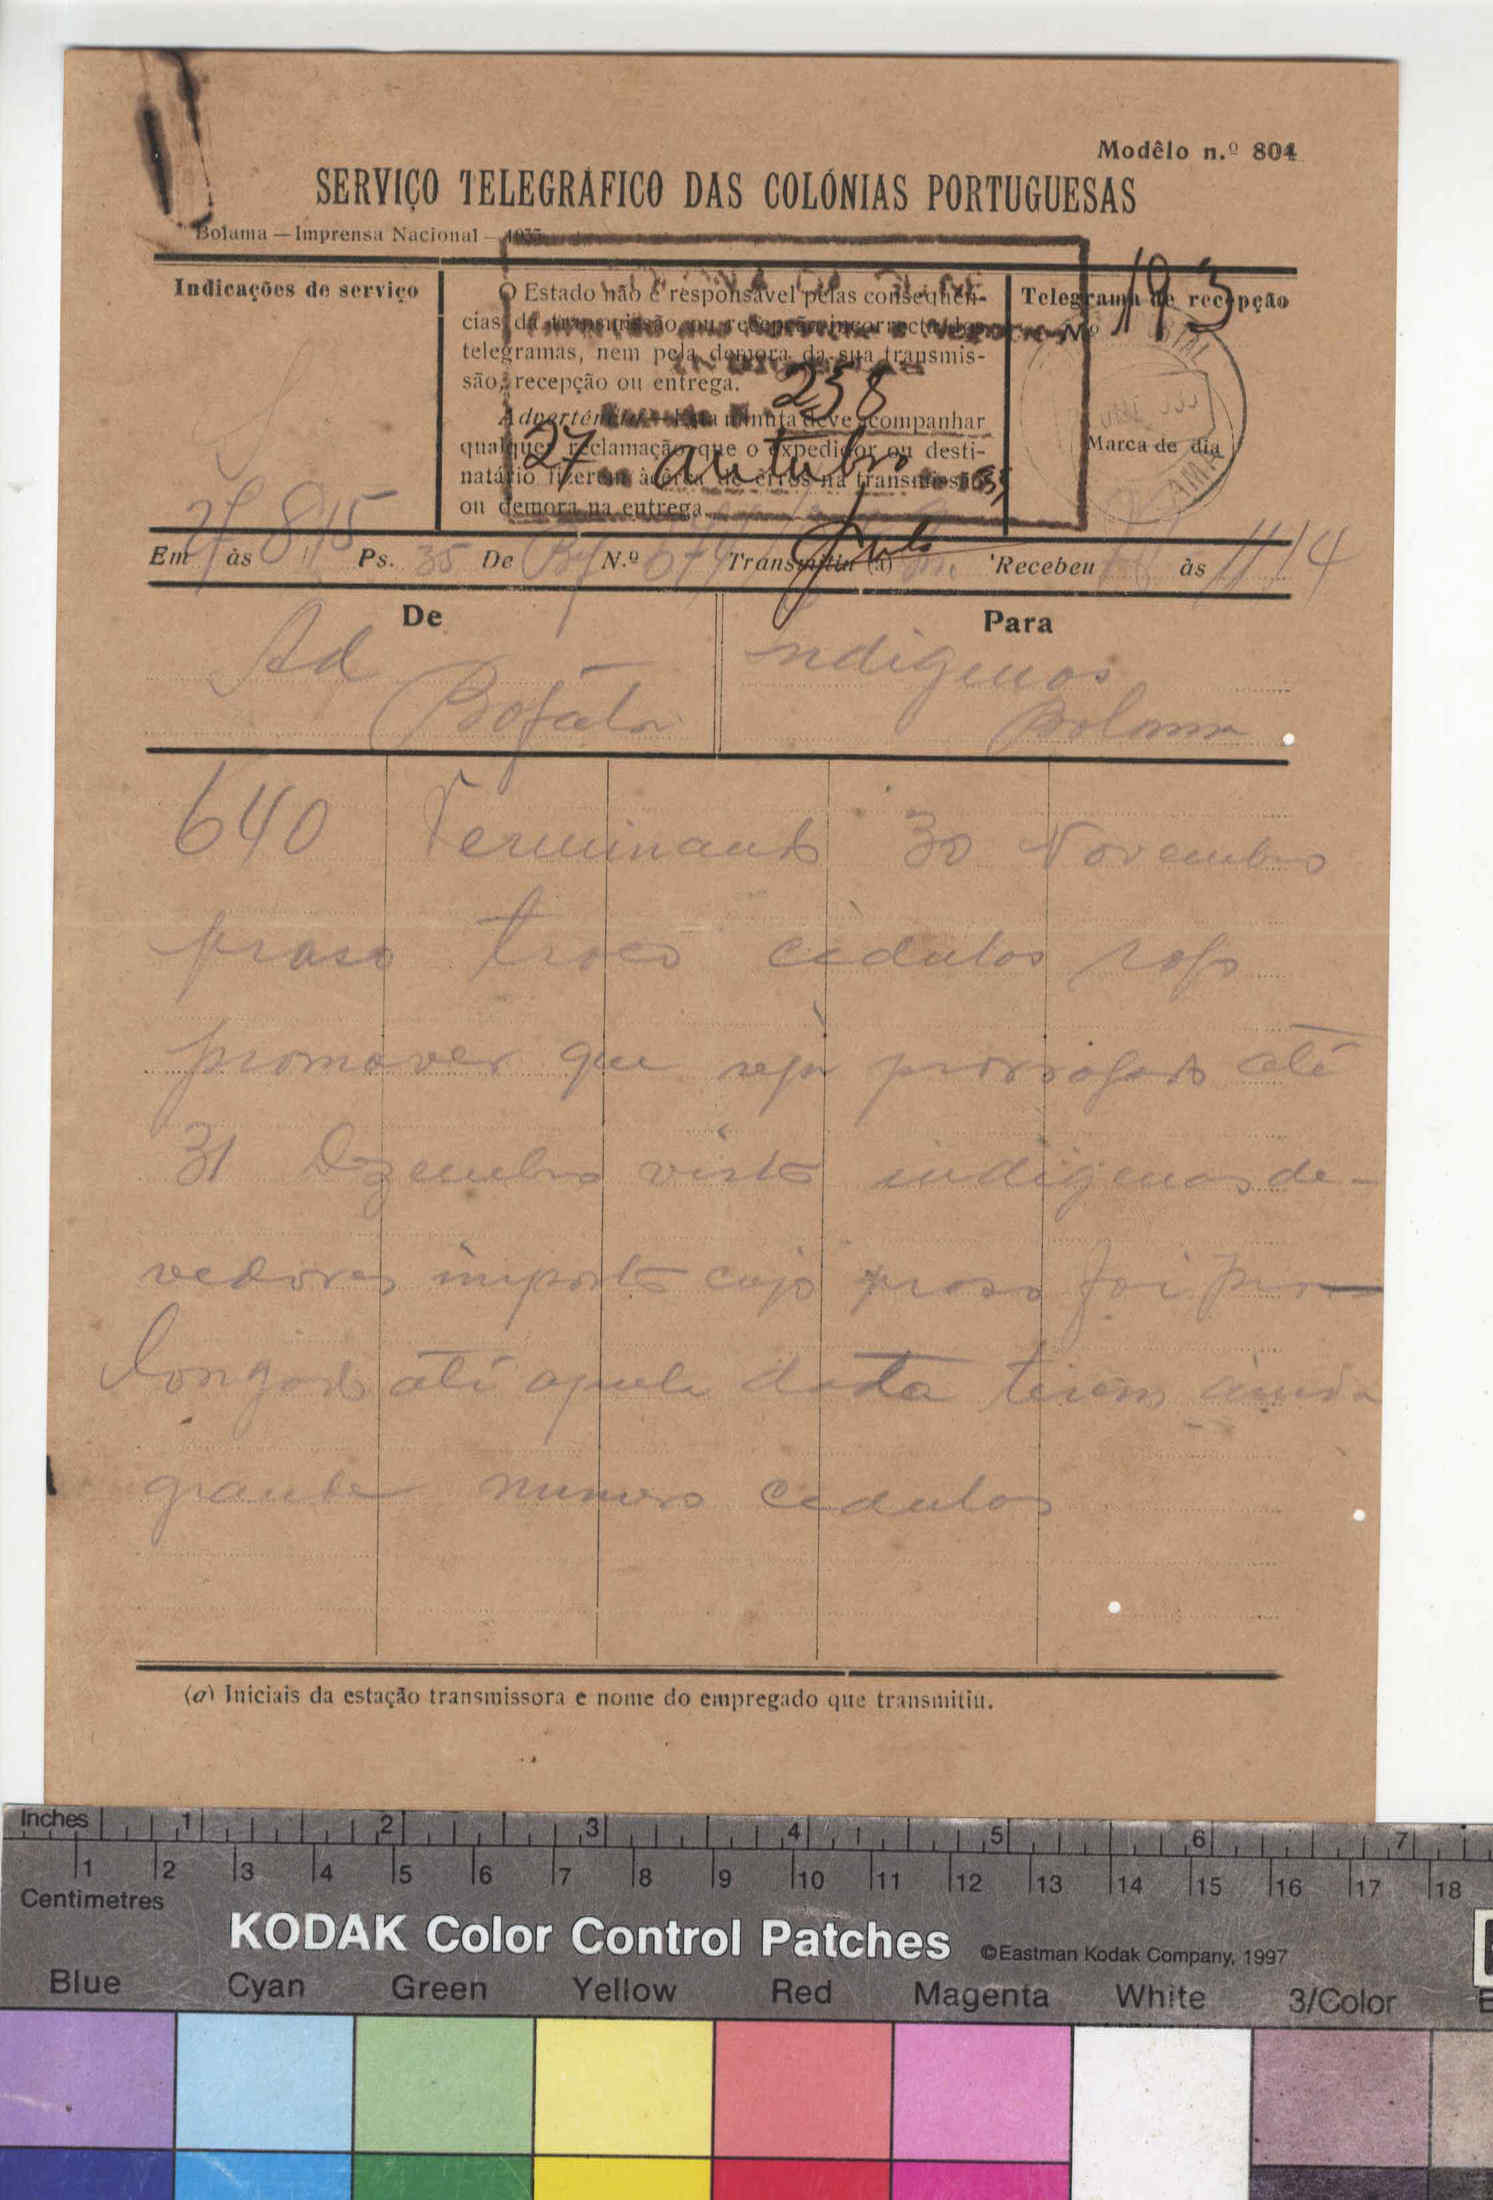 Modêlo n.º 804
SERVIÇO TELEGRÁFICO DAS COLÓNIAS PORTUGUESAS
Bolama — Imprensa Nacional —
Indicações de serviço
O Estado não é responsável pelas conseqüên-
cias da transmissão ou recepção incorrecta dos
telegramas, nem pela demora da sua transmis-
são, recepção ou entrega.
Advertência. — Esta minuta deve acompanhar
qualquer reclamação que o expedidor ou desti-
natário fizerem àcêrca de erros na transmissão
ou demora na entrega.
258
27 outubro
Telegrama de recepção
Nº 193
Marca de dia
Em 27 às 8,15 Ps. 35 De Bf N.º Transmitiu (a) Recebeu às 11/14
De
Para
Ad
Bofata
ndigenas
Bolama
640 Terminando 30 Novembro
praso troco cedulas rogo
promover que seja prorrogado até
31 Dezembro visto indigenas de-
vedores imposto cujo praso foi pro-
longado até aquela data terem ainda
grande numero cedulas
(a) Iniciais da estação transmissora e nome do empregado que transmitiu.
Inches 1 2 3 4 5 6 7
1 2 3 4 5 6 7 8 9 10 11 12 13 14 15 16 17 18
Centimetres
KODAK Color Control Patches ©Eastman Kodak Company, 1997
Blue Cyan Green Yellow Red Magenta White 3/Color